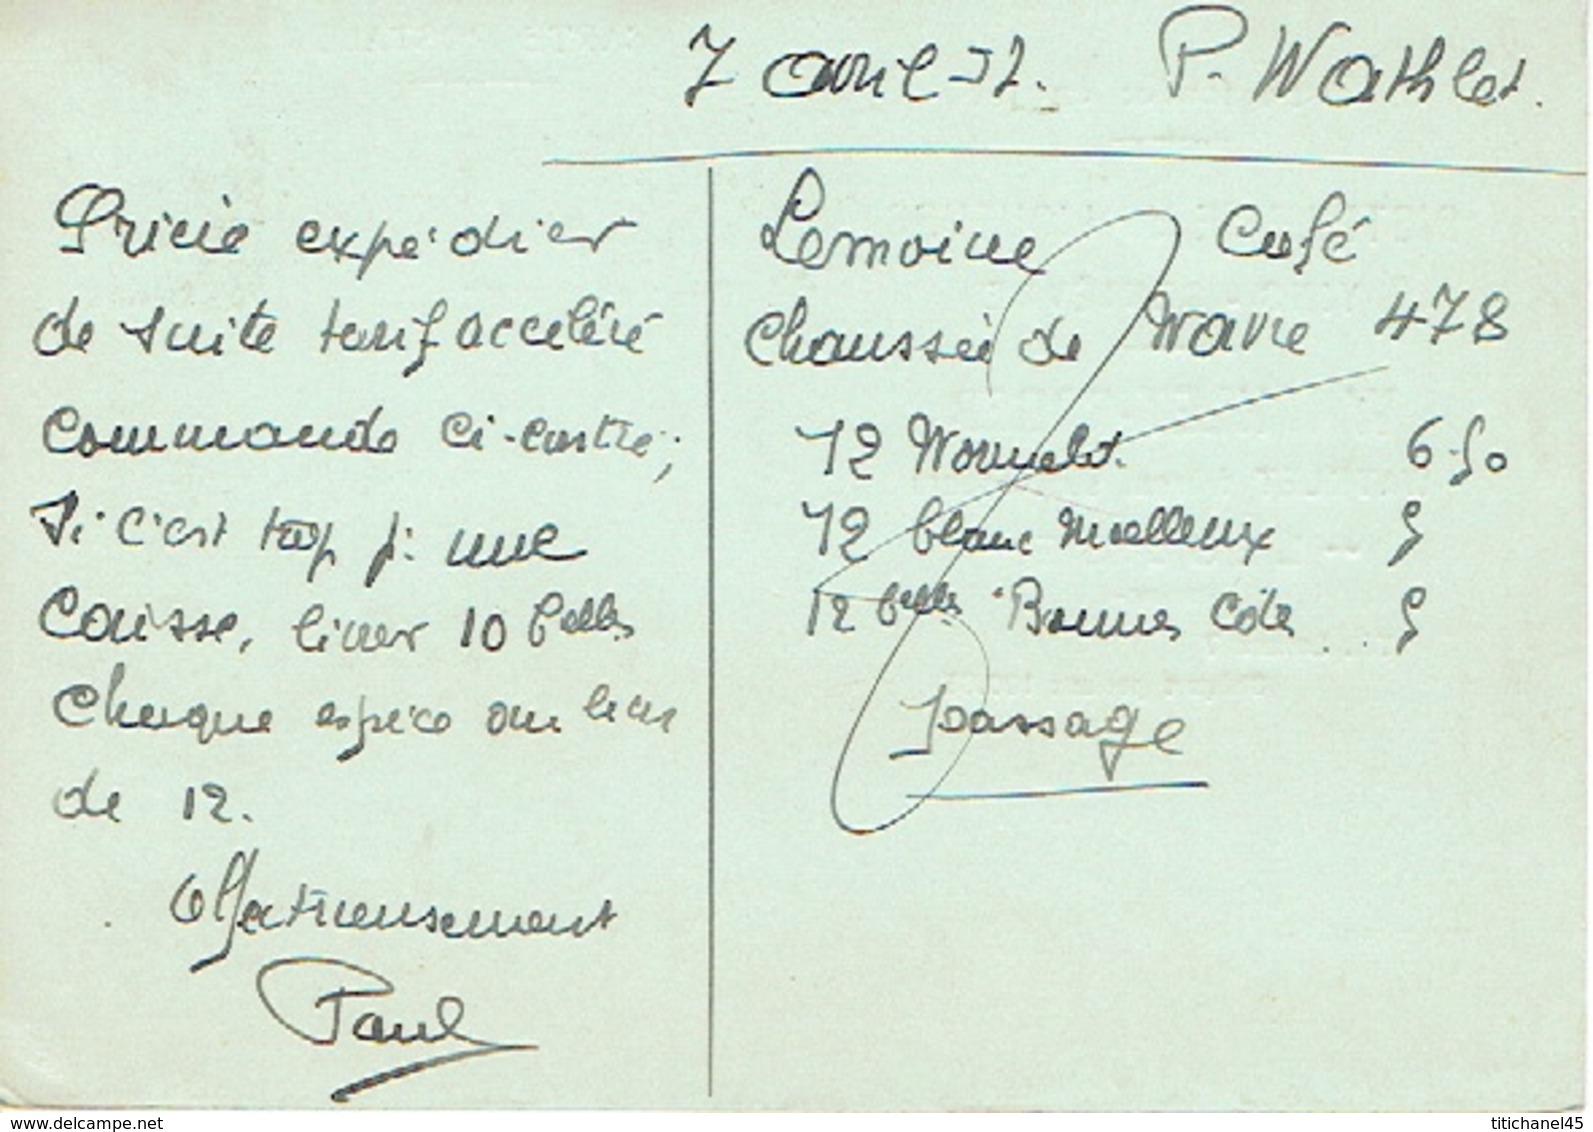 7 avril P. Wathlet.
Prière expédier
de suite tarif accéléré
commande ci-contre;
Si c'est trop p: une
Caisse, livrer 10 belles
Chaque espèce au lieu
de 12.
Affectueusement
Paul
Lemoine Café
Chaussée de Wavre 478
12 6.50
12 blanc Moelleux 9
12 belles Bonnes Côtes 9
passage
delcampe.net
titichanel45